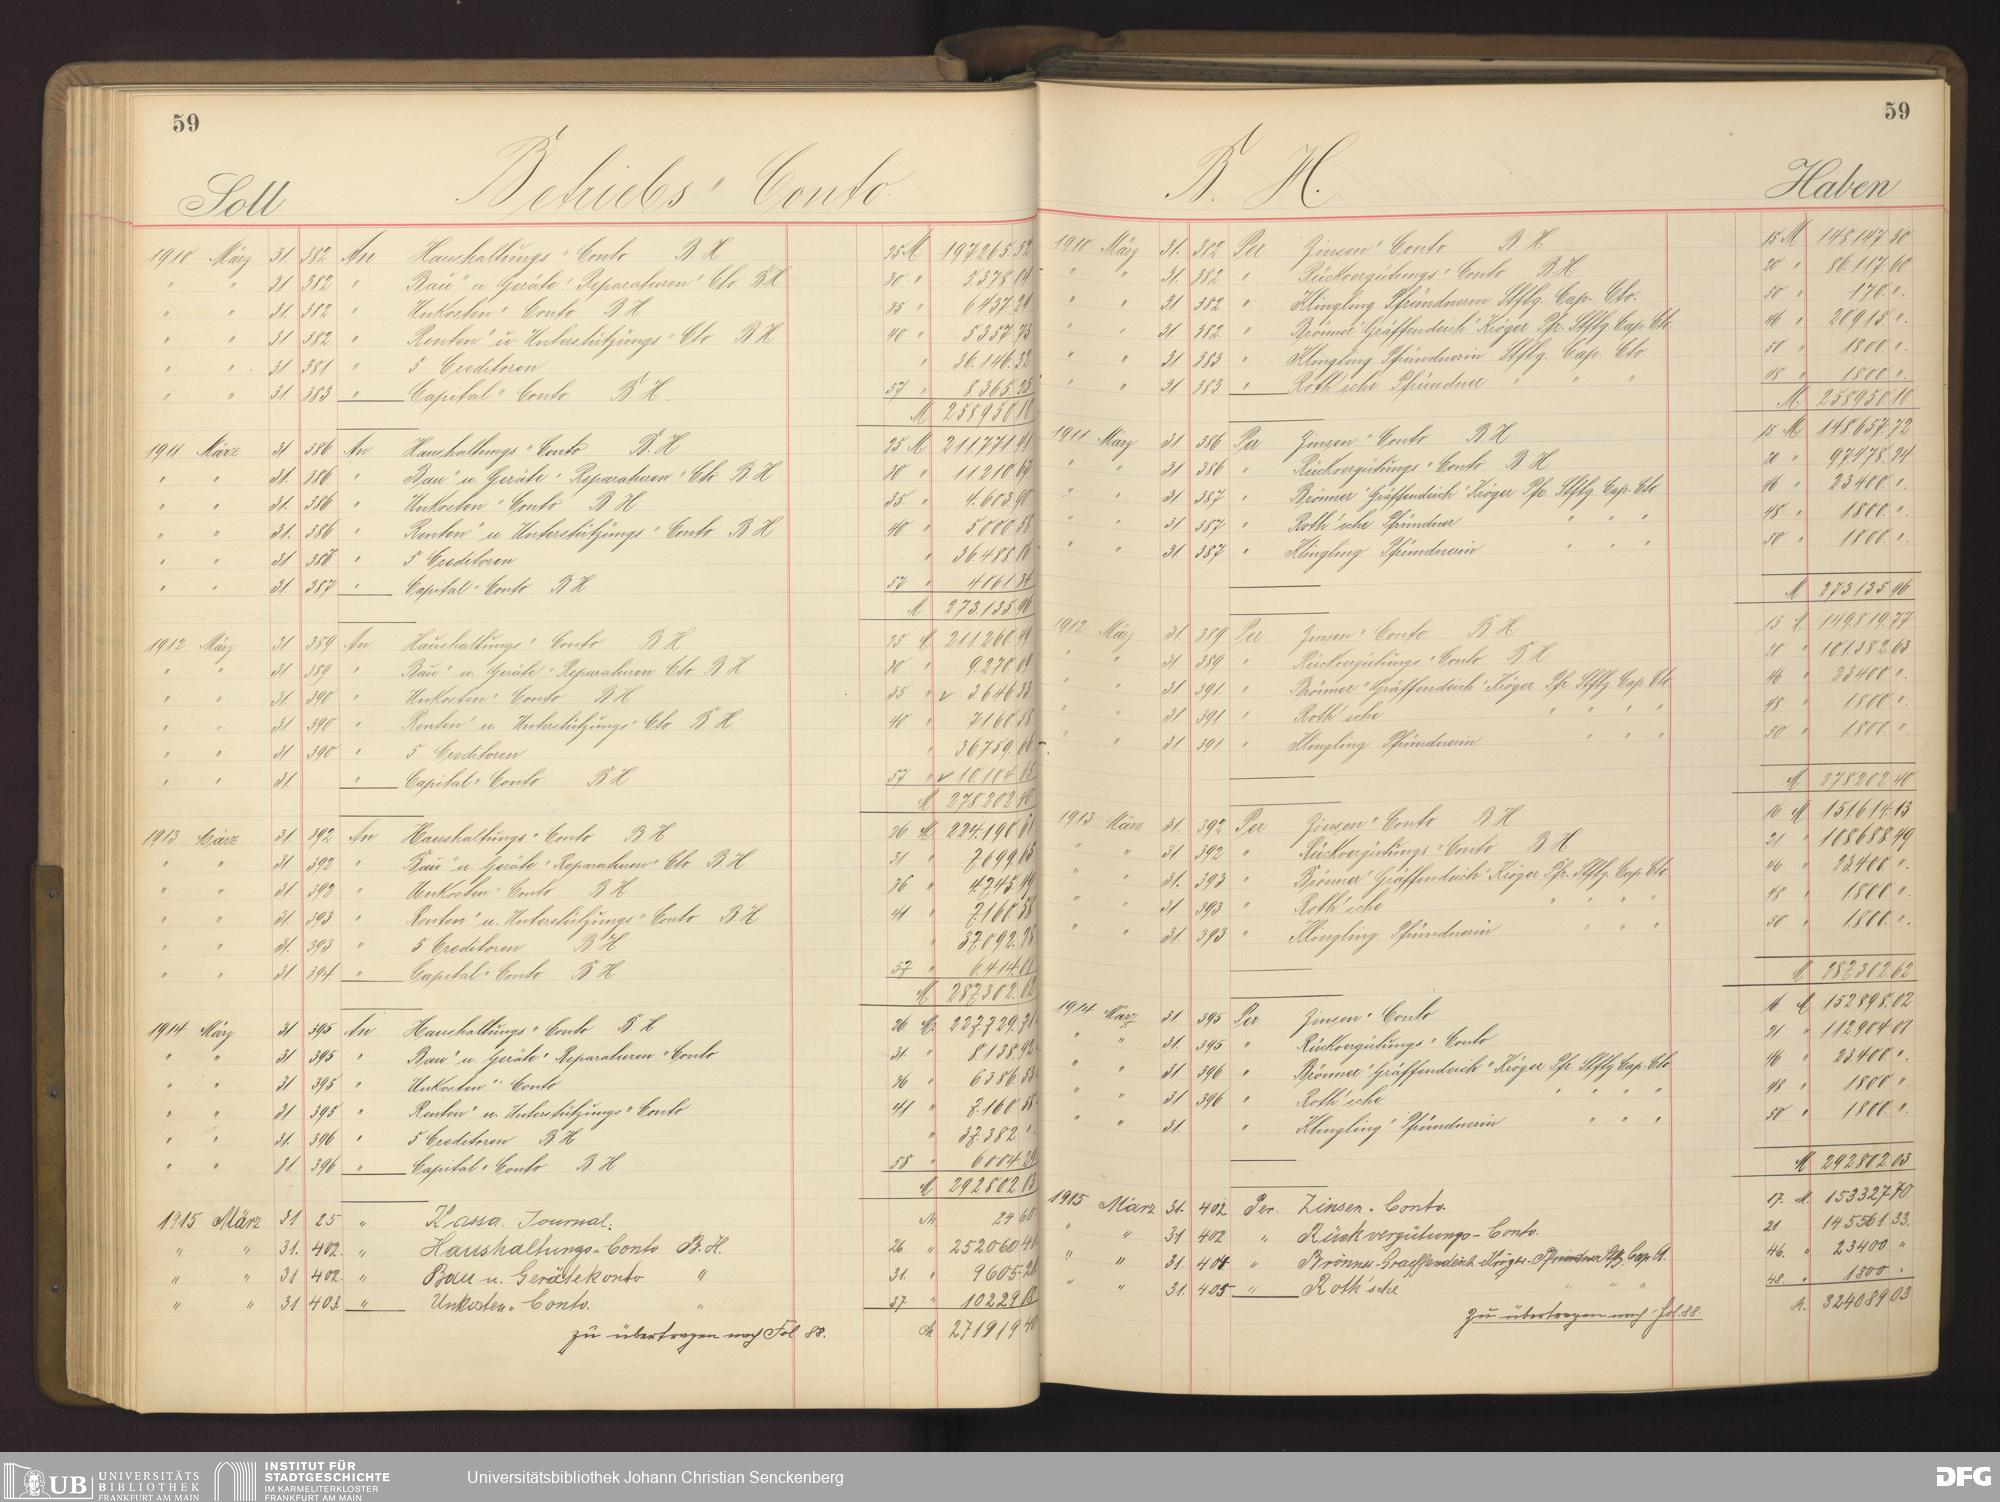 59
Soll Betriebs" Conto
1910 März 31 382 An Haushaltungs" Conto B. H 25 M 197265.52
" " 31 382 " Bau" u Geräte" Reparaturen" Cto B H 30 " 5378.04
" " 31. 382 " Unkosten" Conto B. H 35 " 6437.24
" " 31 382. " Renten" u. Unterstützungs" Cto B H 40 " 5357.73
" " 31 381 " 5 Creditoren " 36.146.32
" " 31 383 " Capital" Conto B H. 57 " 8365.25
M 258950.10
1911 März 31 386 An Haushaltungs" Conto B. H 25 M 211771.41
" " 31. 386 " Bau" u. Geräte" Reparaturen" Cto B. H 30 " 11210.67
" " 31. 386 " Unkosten" Conto B H 35 " 4.603.90
" " 31. 386 " Renten" u Unterstützungs" Conto B H 40 " 5000.58
" " 31 386 " 5 Creditoren " 36.488.16
" " 31 387 " Capital" Conto B H 57 " 4061.24
M 273.135.96
1912 März 31 389 An Haushaltungs" Conto B H 25 M 211260.49
" " 31 389 " Bau" u. Geräte" Reparaturen Cto. B H 30 " 9.270.09
" " 31. 390 " Unkosten" Conto B H 35 " 3646.33
" " 31 390 " Renten" u Unterstützungs" Cto B H 40 " 7160.58
" " 31 390 " 5 Creditoren " 36759.06
" " 31. " Capital" Conto B H 57 " 10.104.65
M 278202.40
1913 März 31. 392 An Haushaltungs" Conto B. H 26 M 224.190.61
" " 31 392 " Bau" u. Geräte" Reparaturen" Cto. B H 31 " 7.699.65
" " 31. 392 " Unkosten" Conto B H 36 " 4.745.49
" " 31. 393 " Renten" u. Unterstützungs" Conto B H 41 " 7.160.58
" " 31. 393 " 5 Creditoren B H " 37.092.28
" " 31. 394 " Capital" Conto B H 57 " 6.414.01
M 287.302.62
1914 März 31 395 An Haushaltungs" Conto B. H 26 M 227.729.71
" " 31 395 " Bau" u. Geräte" Reparaturen" Conto 31. " 8138.92
" " 31 395 " Unkosten" Conto 36 " 6386.53
" " 31 395 " Renten" u. Unterstützungs" Conto 41 " 7.160.58
" " 31. 396 " 5 Creditoren B H " 37.382 "
" " 31 396 " Capital" Conto B. H 58 " 6004.29
M 292802.03
1915 März 31 25 " Kassa Journal. M 24 60
" " 31. 402. " Haushaltungs-Conto B. H. 26 " 252060 41
" " 31 402. " Bau u. Gerätekonto " 31. " 9605.21
" " 31 403. " Unkosten-Conto. " 37 " 10229.18
zu übertragen nach Fol 88. M 271919 40
59
B. H. Haben
1910 März 31. 382 Per Zinsen" Conto B H 15 M 148147.50
" " 31. 382 " Rückvergütungs" Conto B H 20 " 86.117.60
" " 31 382 " Klingling Pfründnerin Stftg. Cap. Cto. 50 " 170. ".
" " 31. 382. " Brönner" Gräffendeich" Kröger Pfr. Stftg Cap Cto 46 " 20.915 ".
" " 31 383 " Klingling Pfründnerin Stftg. Cap. Cto. 50 " 1800. ".
" " 31 383 " Roth'sche Pfründner " " " 48 " 1800. ".
M. 258950.10
1911 März 31 386 Per Zinsen" Conto B H 15 M 148.657.72
" " 31 386 " Rückvergütungs" Conto B H 20 " 97478.24
" " 31 387 " Brönner" Gräffendeich" Kröger Pfr. Stftg Cap. Cto 46 " 23400. ".
" " 31 387 " Roth'sche Pfründner " " " 48 " 1800. ".
" " 31 387 " Klingling Pfründnerin " " " 50 " 1800. ".
M 273.135.96
1912 März 31. 389 Per Zinsen" Conto B H 15 M 149.819.77
" " 31 389 " Rückvergütungs" Conto B H 20 " 101.382.63
" " 31 391. " Brönner" Gräffendeich" Kröger Pfr Stftg Cap Cto 46 " 23400 ".
" " 31 391 " Roth'sche " " " " 48 " 1800 ".
" " 31 391 " Klingling Pfründnerin " " " 50 " 1800. ".
M 278202.40
1913 März 31. 392 Per Zinsen" Conto B H 16 M 151614.13
" " 31 392 " Rückvergütungs" Conto B. H 21 " 108688.49
" " 31. 393 " Brönner" Gräffendeich" Kröger Pfr. Stftg. Cap. Cto 46 " 23.400. ".
" " 31 393 " Roth'sche " " " " 48 " 1800. ".
" " 31. 393 " Klingling Pfründnerin " " " 50 " 1.800. ".
M 287.302.62
1914 März 31. 395 Per Zinsen" Conto 16 M 152898.02
" " 31. 395 " Rückvergütungs" Conto 21 " 112904.01
" " 31 396 " Brönner" Gräffendeich" Kröger Pfr. Stftg Cap. Cto. 46 " 23.400. ".
" " 31 396 " Roth'sche " " " " 48 " 1800 ".
" " 31 " Klingling" Pfründnerin " " " 50 " 1800. ".
M 292802.03
1915 März 31. 402 Per. Zinsen-Conto. 17. M. 153327.70
" " 31 402 " Rückvergütungs-Conto. 21 " 145561.33.
" " 31. 404 " Brönner-Graeffendeich-Kröger-Pfründner Stftg. Cap. Ct. 46. " 23400 "
" " 31. 405 " Roth'sche " " " 48. " 1800 "
zu übertragen nach Fol. 88 M. 324089 03
UB UNIVERSITÄTS BIBLIOTHEK FRANKFURT AM MAIN
INSTITUT FÜR STADTGESCHICHTE IM KARMELITERKLOSTER FRANKFURT AM MAIN
Universitätsbibliothek Johann Christian Senckenberg
DFG